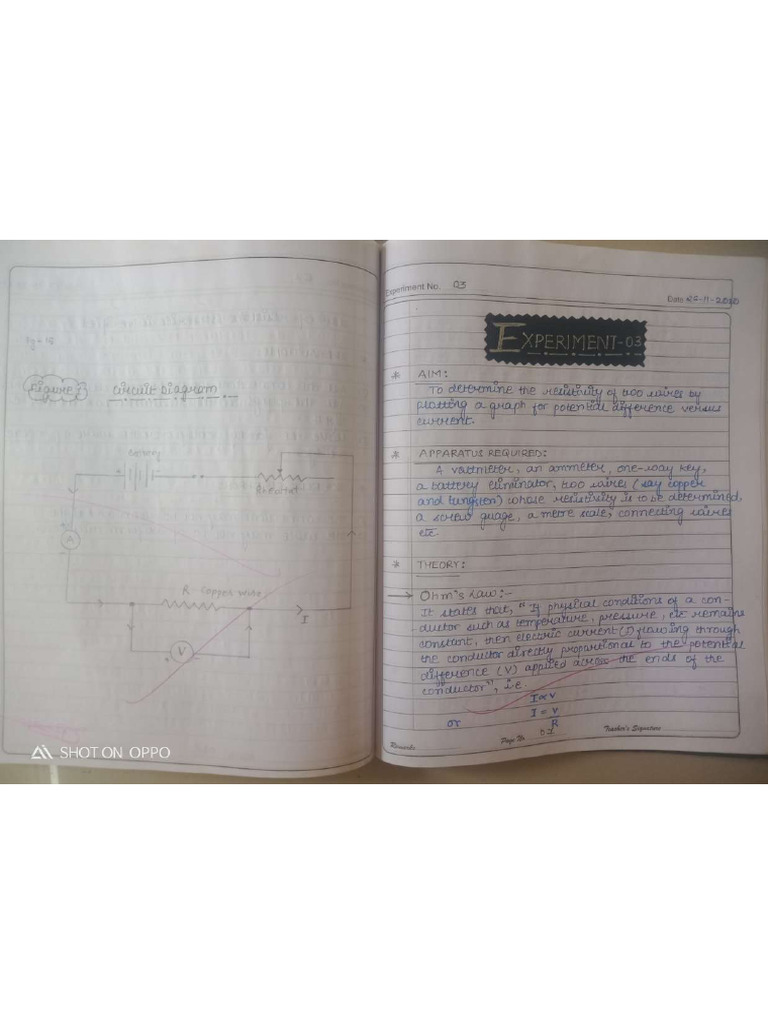 Figure:
circuit Diagram
Battery
Rheostat
A
R (copper wire)
I
V
SHOT ON OPPO
Experiment No. 03
Date 25-11-2020
EXPERIMENT-03
* AIM:
To determine the resistivity of two wires by
plotting a graph for potential difference versus
current.
* APPARATUS REQUIRED:
A voltmeter, an ammeter, one-way key,
a battery eliminator, two wires (say copper
and tungsten) whose resistivity is to be determined,
a screw guage, a metre scale, connecting wires
etc.
* THEORY:
→ Ohm's Law:-
It states that, "If physical conditions of a con-
ductor such as temperature, pressure, etc remains
constant, then electric current (I) flowing through
the conductor directly proportional to the potential
difference (V) applied across the ends of the
conductor", i.e.
I ∝ V
or I = V
R
Remarks
Page No.
Teacher's Signature